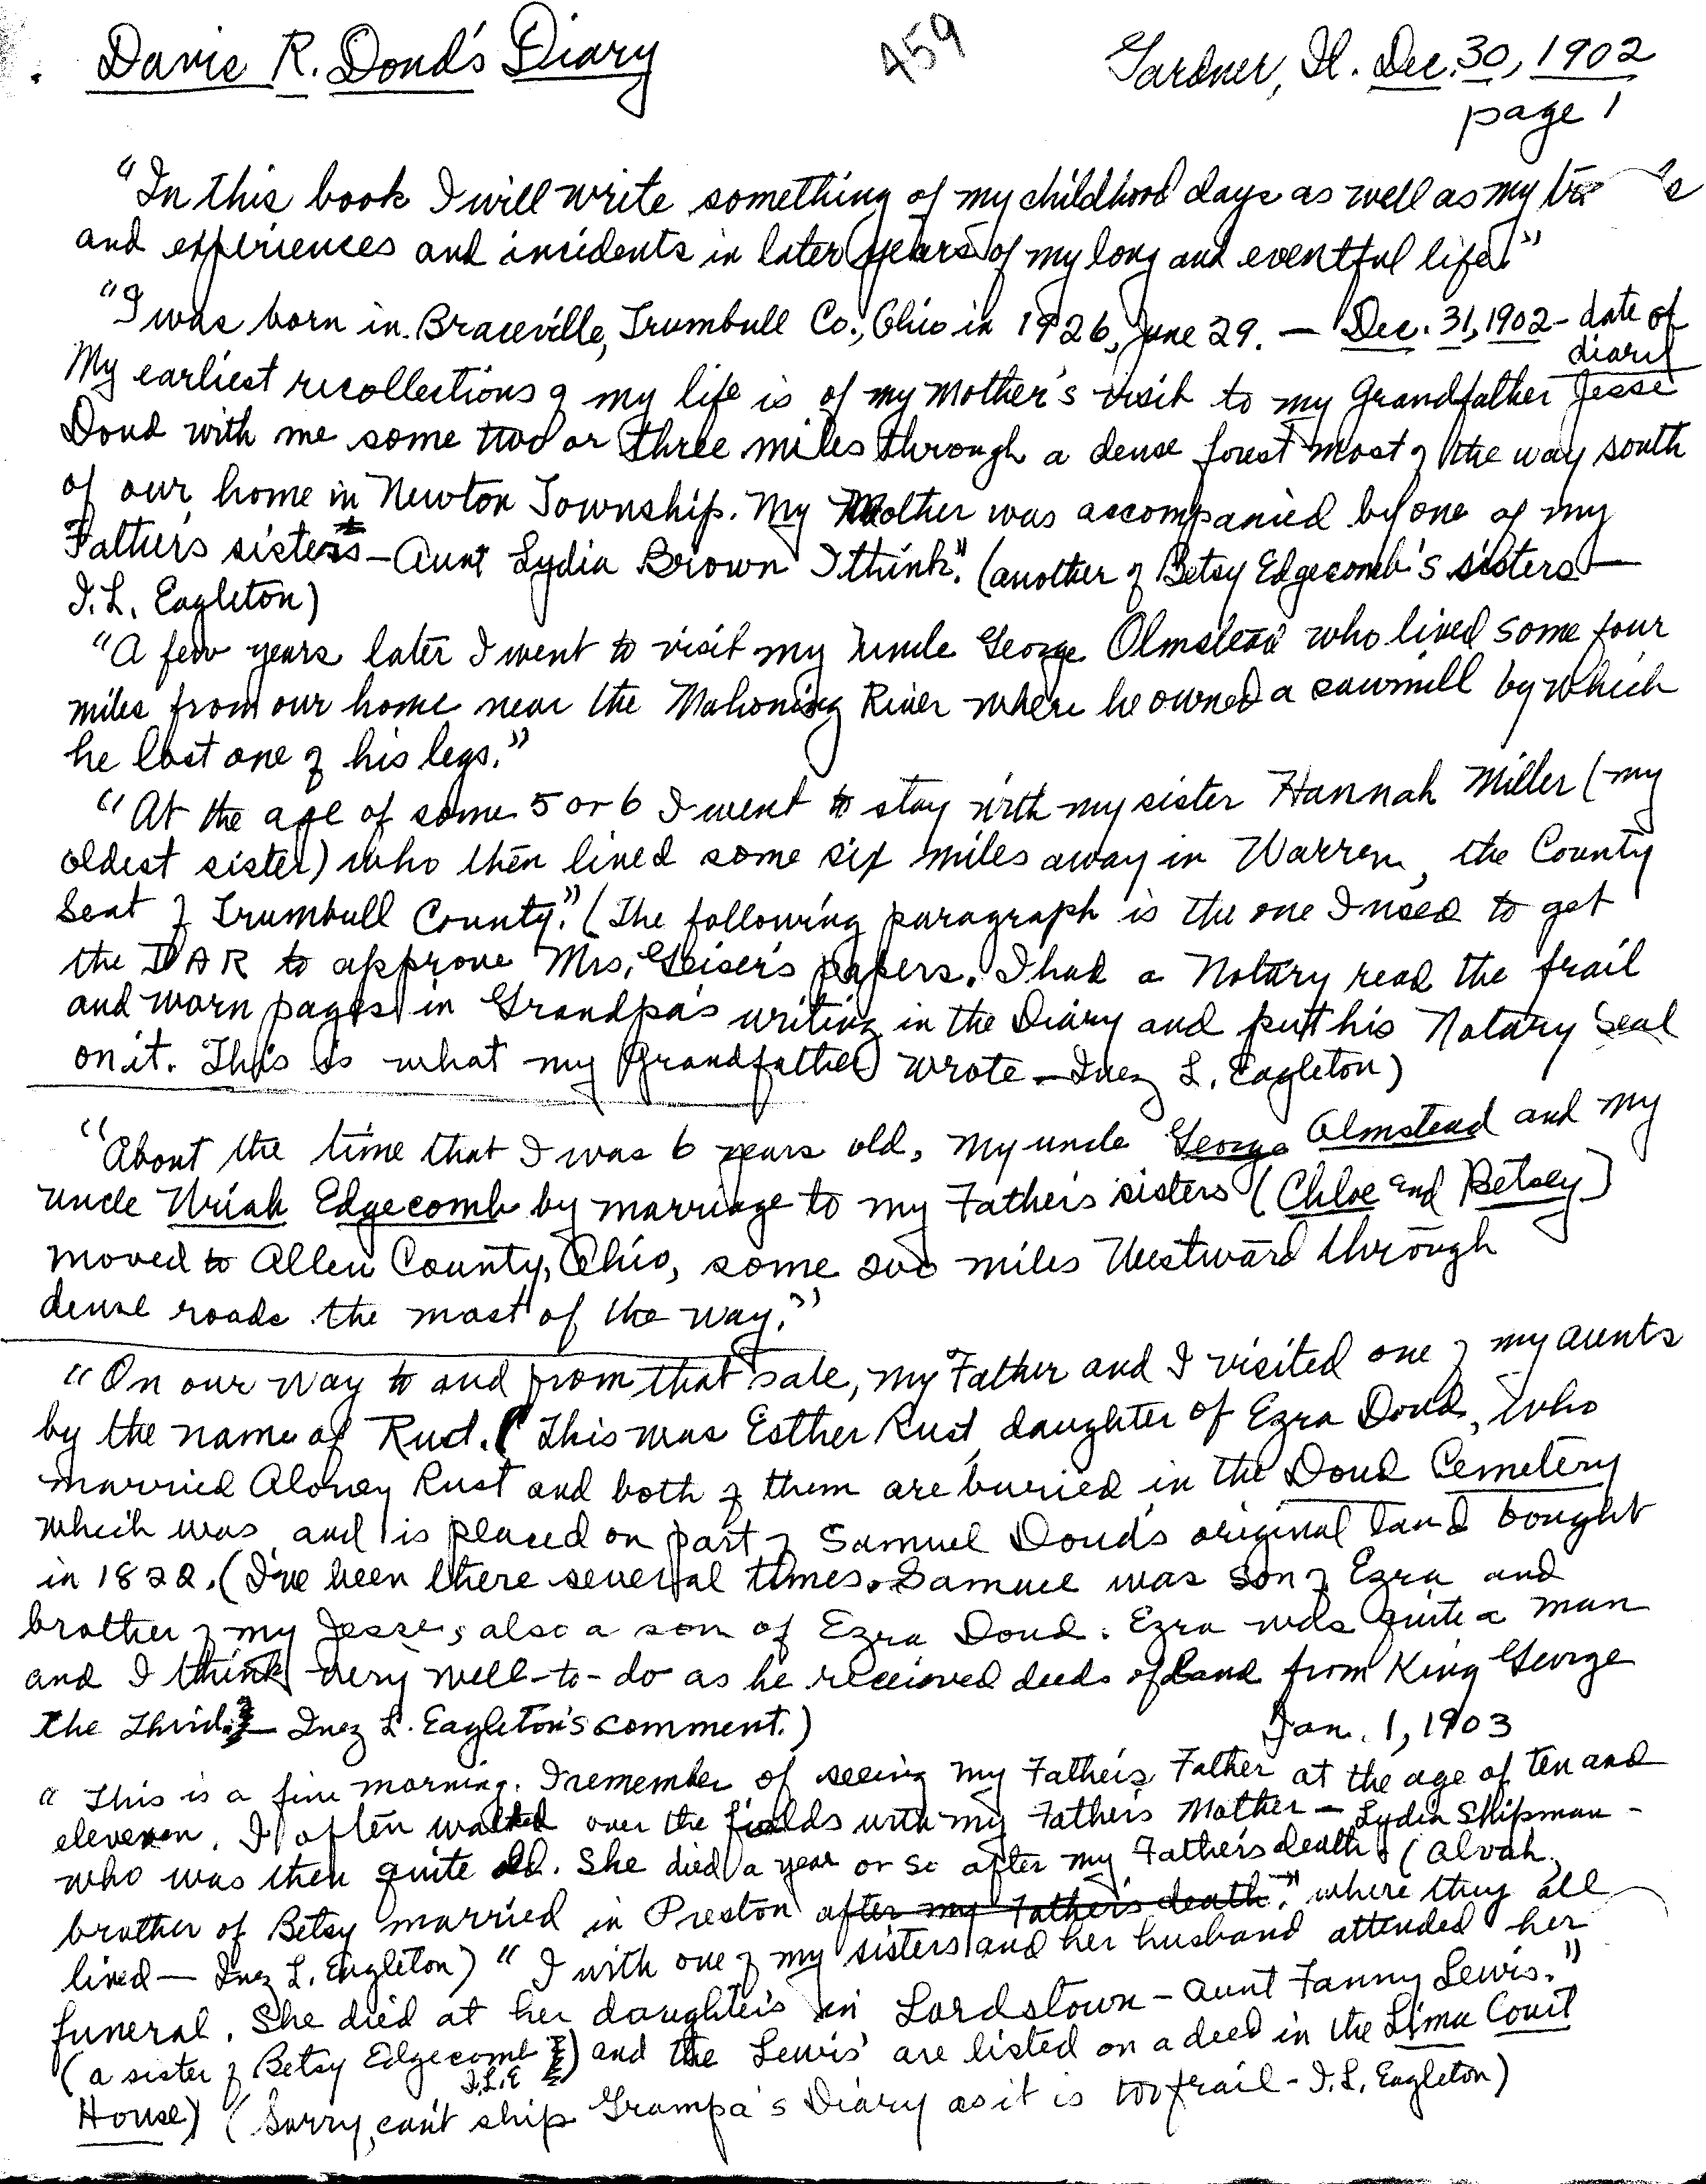 Davis R. Doud's Diary
459
Gardner, Il. Dec. 30, 1902
page 1
"In this book I will write something of my childhood days as well as my
and experiences and incidents in later years of my long and eventful life."
"I was born in Braceville, Trumbull Co., Ohio in 1826, June 29. — Dec. 31, 1902 - date of
diary
My earliest recollections of my life is of my Mother's visit to my Grandfather Jesse
Doud with me some two or three miles through a dense forest most of the way south
of our home in Newton Township. My Mother was accompanied by one of my
Father's sisters - Aunt Lydia Brown I think". (another of Betsy Edgecomb's sisters —
I. L. Eagleton)
"A few years later I went to visit my uncle George Olmstead who lived some four
miles from our home near the Mahoning River where he owned a sawmill by which
he lost one of his legs."
"At the age of some 5 or 6 I went to stay with my sister Hannah Miller (my
oldest sister) who then lived some six miles away in Warren, the County
Seat of Trumbull County." (The following paragraph is the one I used to get
the DAR to approve Mrs. Geiser's papers. I had a Notary read the frail
and worn pages in Grandpa's writing in the Diary and put his Notary Seal
on it. This is what my Grandfather wrote — Inez L. Eagleton)
"About the time that I was 6 years old, my uncle George Olmstead and my
uncle Uriah Edgecomb by marriage to my Father's sisters (Chloe and Betsey)
moved to Allen County, Ohio, some 200 miles Westward through
dense roads the most of the way."
"On our way to and from that sale, my Father and I visited one of my aunts
by the name of Rust. (This was Esther Rust, daughter of Ezra Doud, who
married Aloney Rust and both of them are buried in the Doud Cemetery
which was and is placed on part of Samuel Doud's original land bought
in 1822. (I've been there several times. Samuel was son of Ezra and
brother of my Jesse, also a son of Ezra Doud. Ezra was quite a man
and I think very well-to-do as he received deeds of land from King George
the Third. — Inez L. Eagleton's comment.)
Jan. 1, 1903
"This is a fine morning. I remember of seeing my Father's Father at the age of ten and
eleven. I often walked over the fields with my Father's Mother — Lydia Shipman -
who was then quite old. She died a year or so after my Father's death. (Alvah,
brother of Betsy married in Preston after my Father's death." where they all
lived — Inez L. Eagleton) "I with one of my sisters and her husband attended her
funeral. She died at her daughter's in Lordstown - Aunt Fanny Lewis."
(a sister of Betsy Edgecomb I.L.E) and the Lewis' are listed on a deed in the Lima Court
House) (Sorry, can't ship Grampa's Diary as it is too frail - I. L. Eagleton)